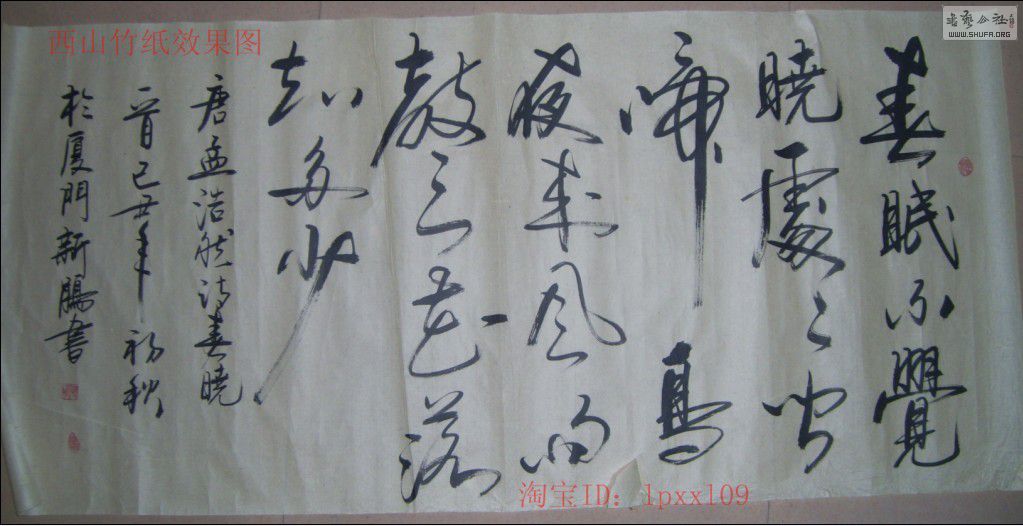 書藝公社
WWW.SHUFA.ORG
西山竹纸效果图
春眠不覺
曉處々聞
啼鳥
夜来风雨
聲花落
知多少
唐孟浩然诗春曉
一首己丑年初秋
於厦門新鵬書
淘宝ID: lpxxl09